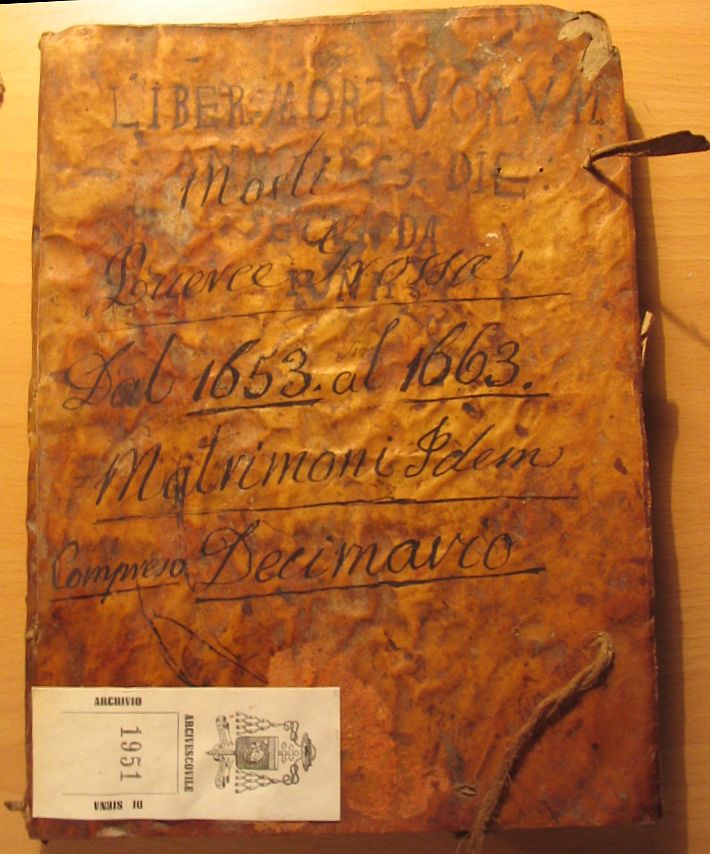 LIBER MORTVORVM
DIE
Morti
Querce Grossa
Dal 1653. al 1663.
Matrimoni Idem
Compreso Decimavco
ARCHIVIO
ARCIVESCOVILE
DI SIENA
1951